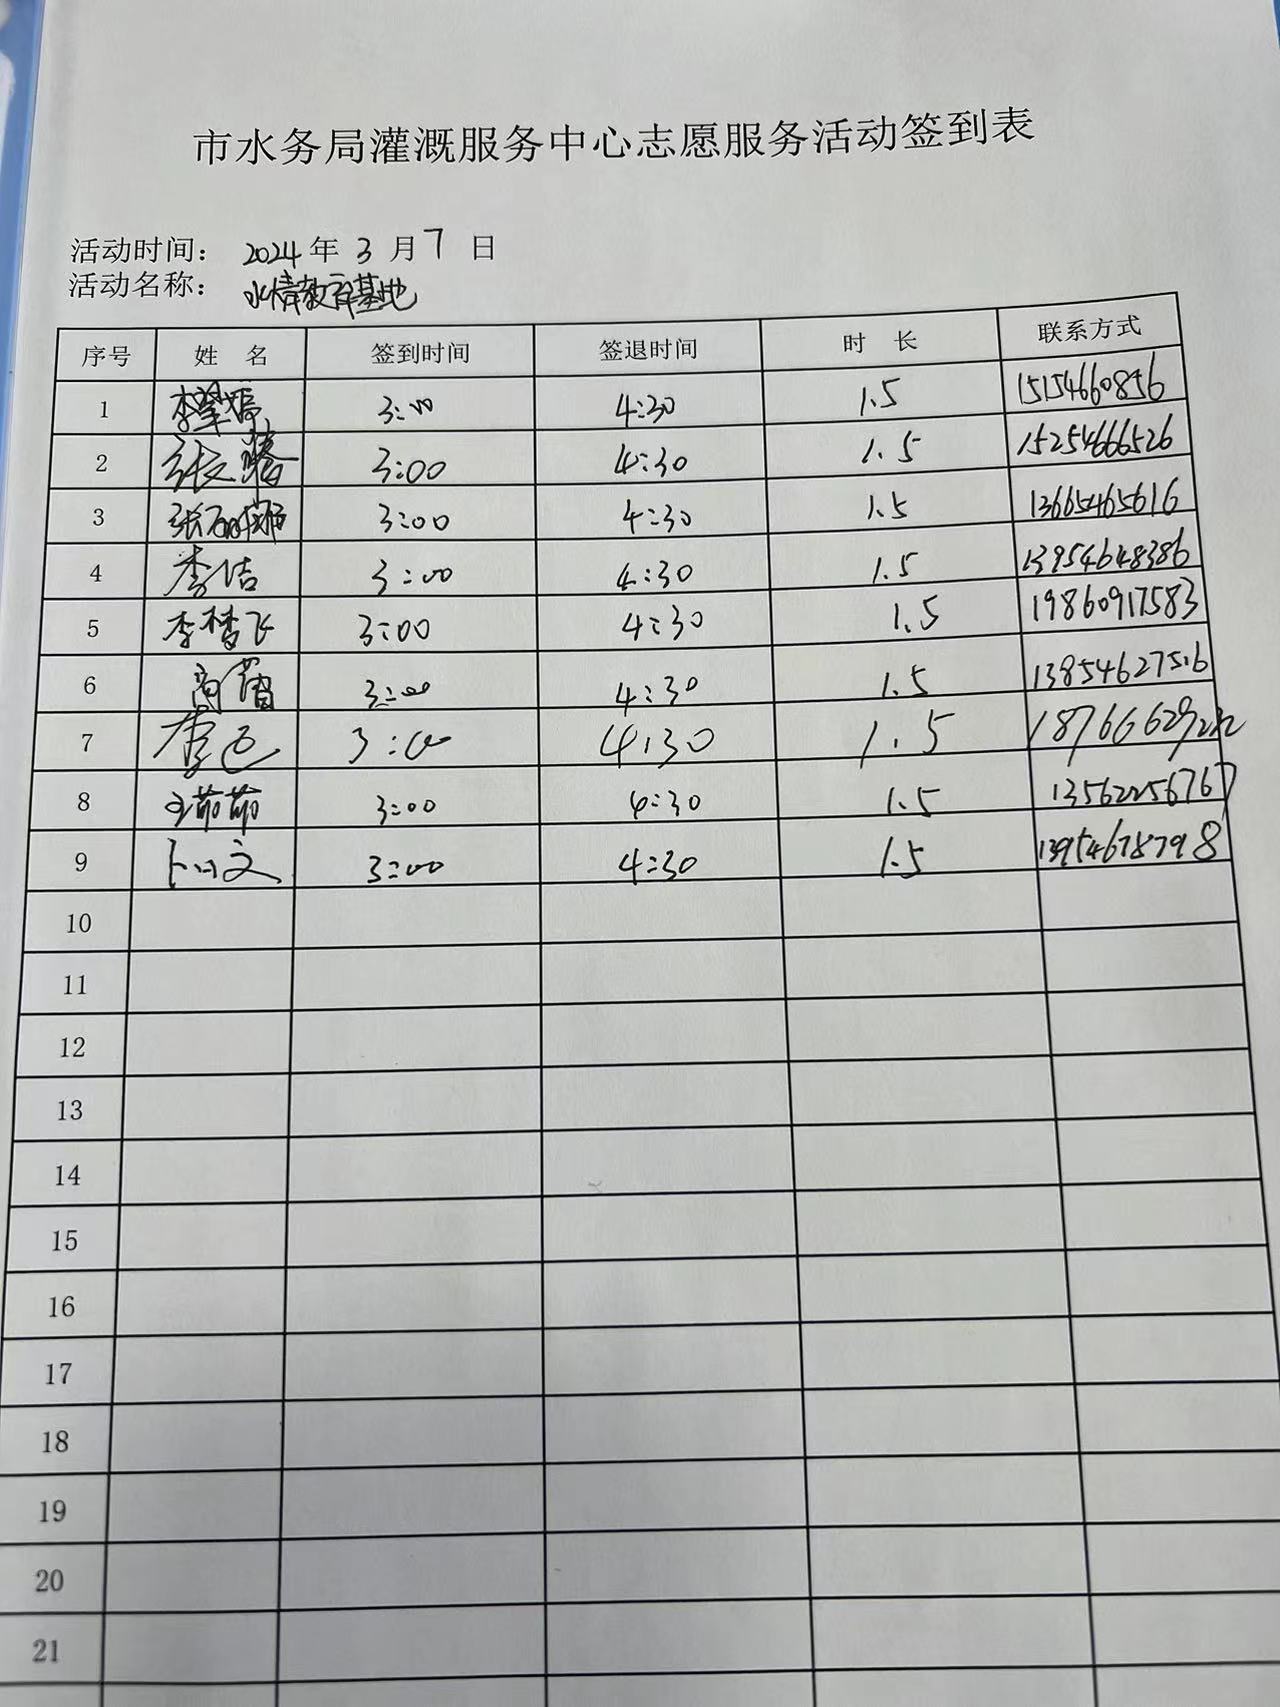 市水务局灌溉服务中心志愿服务活动签到表
活动时间： 2024 年 3 月 7 日
活动名称： 水情教育基地
序号 姓 名 签到时间 签退时间 时 长 联系方式
1 3:00 4:30 1.5 15154660856
2 张 3:00 4:30 1.5 15254666526
3 张 3:00 4:30 1.5 13665465616
4 李洁 3:00 4:30 1.5 13954648386
5 李梦飞 3:00 4:30 1.5 19860917583
6 3:00 4:30 1.5 13854627516
7 3:00 4:30 1.5
8 王茹茹 3:00 4:30 1.5 13562256767
9 3:00 4:30 1.5 13954678798
10
11
12
13
14
15
16
17
18
19
20
21